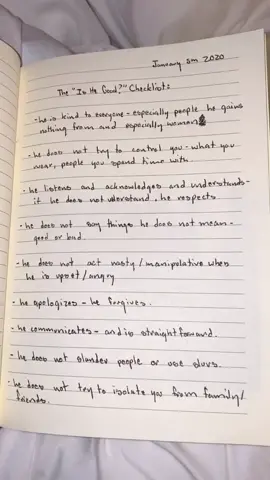 January 5th 2020
The "Is He Good?" Checklist:
- he is kind to everyone - especially people he gains
nothing from and especially women
- he does not try to control you - what you
wear, people you spend time with
- he listens and acknowledges and understands -
if he does not understand, he respects
- he does not say things he does not mean -
good or bad.
- he does not act nasty/manipulative when
he is upset/angry
- he apologizes - he forgives.
- he communicates - and is straightforward.
- he does not slander people or use slurs.
- he does not try to isolate you from family/
friends.